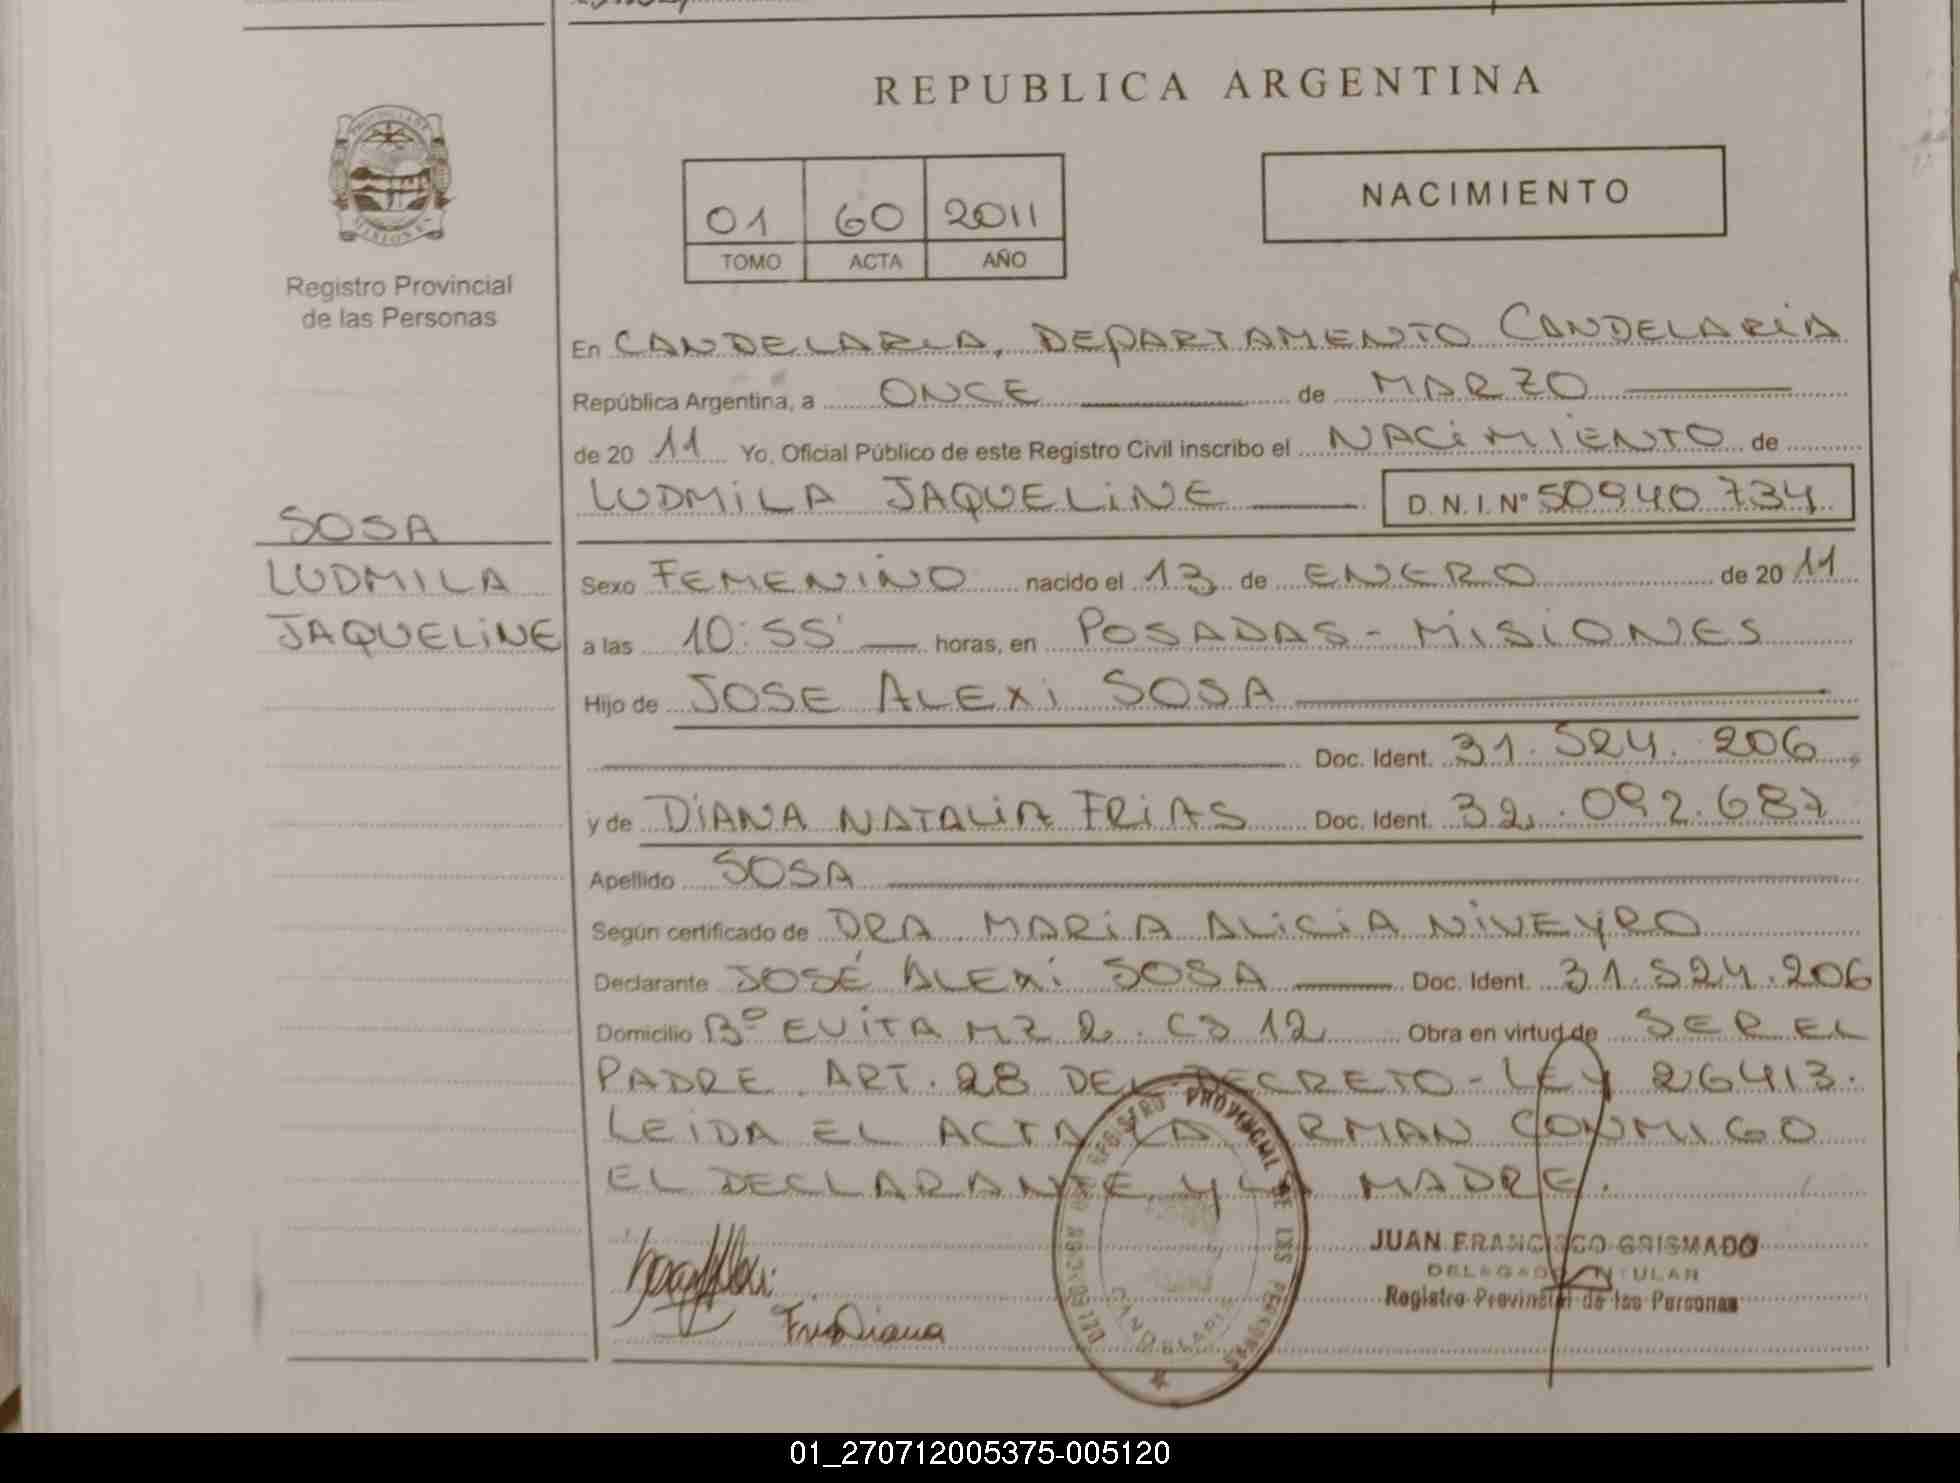 REPUBLICA ARGENTINA
NACIMIENTO
01 60 2011
TOMO ACTA AÑO
Registro Provincial
de las Personas
SOSA
LUDMILA
JAQUELINE
En CANDELARIA, DEPARTAMENTO CANDELARIA
República Argentina, a ONCE de MARZO
de 2011 Yo, Oficial Público de este Registro Civil inscribo el NACIMIENTO de
LUDMILA JAQUELINE D.N.I. Nº 50940.734
Sexo FEMENINO nacido el 13 de ENERO de 2011
a las 10:55' horas, en POSADAS - MISIONES
Hijo de JOSE ALEXI SOSA
Doc. Ident. 31.524.206
y de DIANA NATALIA FRIAS Doc. Ident. 32.092.687
Apellido SOSA
Según certificado de DRA MARIA ALICIA NIVEYRO
Declarante JOSÉ ALEXI SOSA Doc. Ident. 31.524.206
Domicilio Bº EVITA MZ 2. CS 12 Obra en virtud de SER EL
PADRE. ART. 28 DEL DECRETO-LEY 26413.
LEIDA EL ACTA LA FIRMAN CONMIGO
EL DECLARANTE Y LA MADRE.
Frias Diana
DELEGACION DEL REGISTRO PROVINCIAL DE LAS PERSONAS
CANDELARIA
JUAN FRANCISCO GRISMADO
DELEGADO TITULAR
Registro Provincial de las Personas
01_270712005375-005120